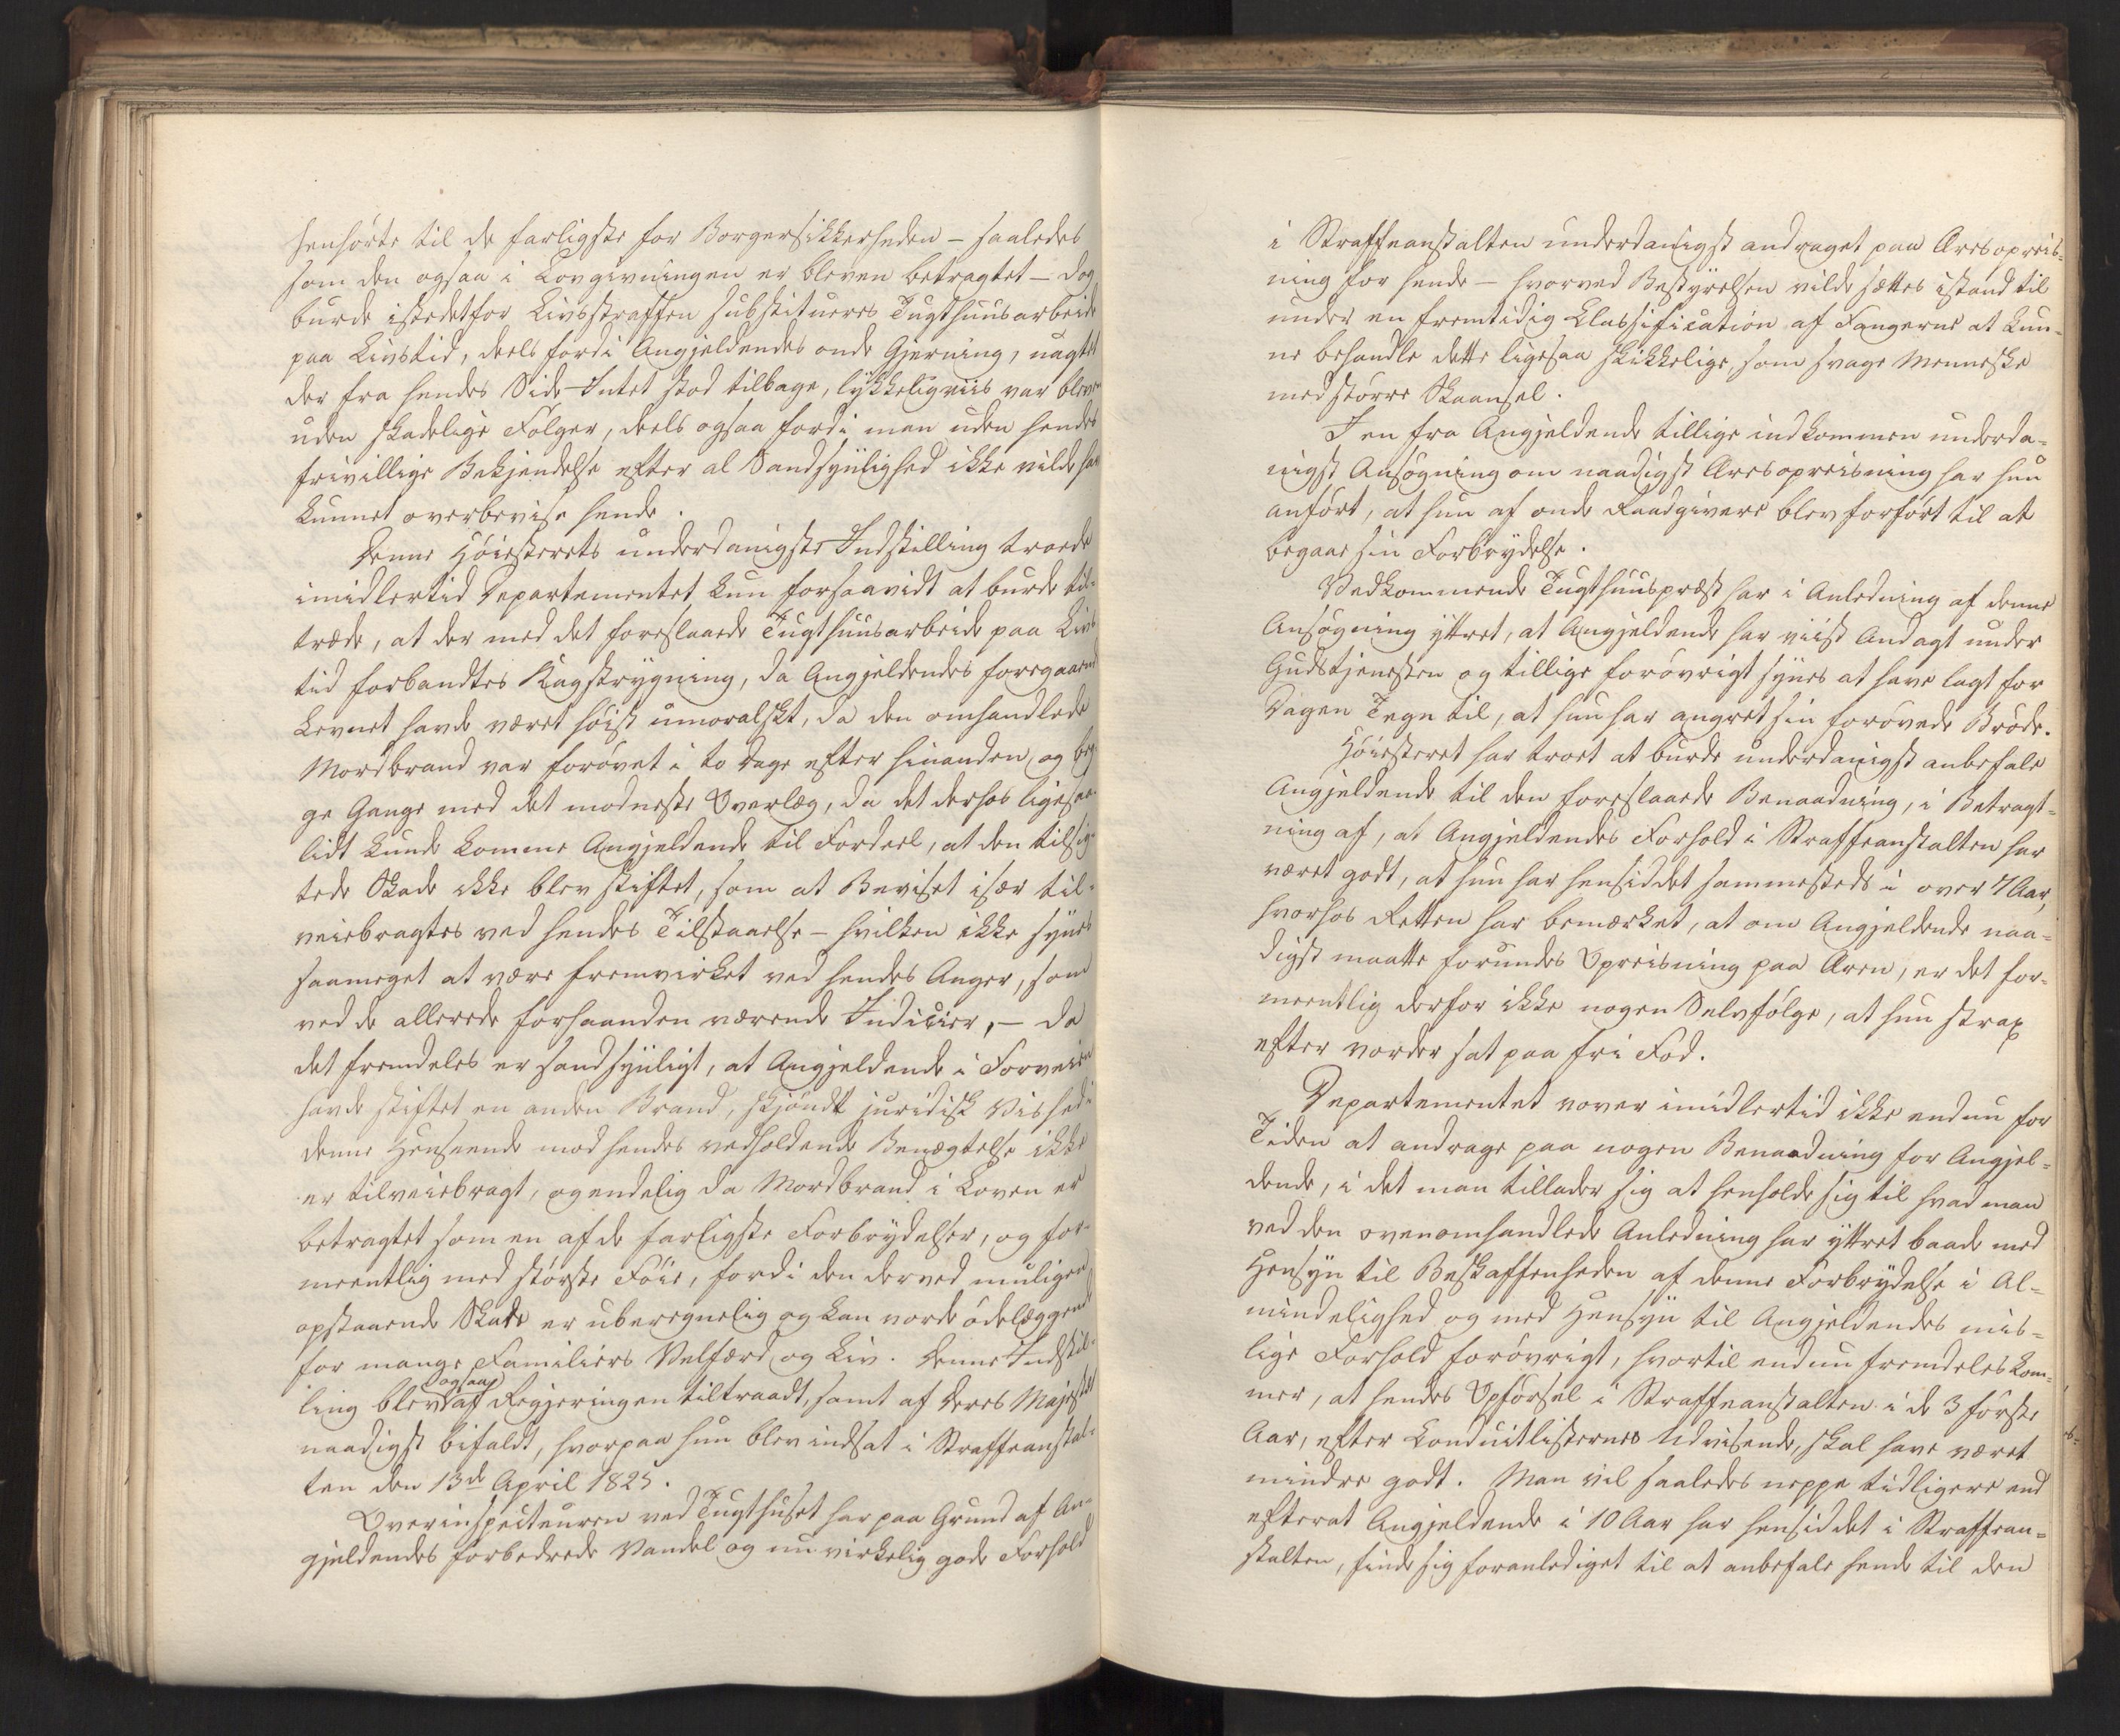 henhörte til de farligste for Borgersikkerheden – saaledes
som den ogsaa i Lovgivningen er bleven betragtet – dog
burde istedetfor Livsstraffen substitueres Tugthuusarbeide
paa Livstid, deels fordi Angjeldendes onde Gjerning, uagtet
der fra hendes Side Intet stod tilbage, lykkeligviis var bleven
uden skadelige Fölger, deels ogsaa fordi man uden hendes
frivillige Bekjendelse efter al Sandsynlighed ikke vilde have
kunnet overbevise hende.
Denne Höiesterets underdanigste Indstilling troede
imidlertid Departementet kun forsaavidt at burde til-
træde, at der med det foreslaaede Tugthuusarbeide paa Livs
tid forbandtes Kagstrygning, da Angjeldendes foregaaende
Levnet havde været höist umoralskt, da den omhandlede
Mordbrand var forövet i to Dage efter hinanden og beg-
ge Gange med det modneste Overlæg, da det derhos ligesaa-
lidt kunde komme Angjeldende til Fordeel, at den tilsig-
tede Skade ikke blev stiftet, som at Beviset især til-
veiebragtes ved hendes Tilstaaelse – hvilken ikke synes
saameget at være fremvirket ved hendes Anger, som
ved de allerede forhaanden værende Indicier, – da
det fremdeles er sandsynligt, at Angjeldende i Forveien
havde stiftet en anden Brand, skjöndt juridisk Vished i
denne Henseende mod hendes vedholdende Benægtelse ikke
er tilveiebragt, og endelig da Mordbrand i Loven er
betragtet som en af de farligste Forbrydelser, og for-
meentlig med störste Föie, fordi den derved muligen
opstaaende Skade er uberegnelig og kan vorde ödelæggende
for mange Familiers Velfærd og Liv. Denne Indstil-
ling blev ogsaa af Regjeringen tiltraadt, samt af Deres Majestet
naadigst bifaldt, hvorpaa hun blev indsat i Straffeanstal-
ten den 13de April 1825.
Overinspecteuren ved Tugthuset har paa Grund af An-
gjeldendes forbedrede Vandel og nu virkelig gode Forhold
i Straffeanstalten underdanigst andraget paa Æresopreis-
ning for hende – hvorved Bestyrelsen vilde sættes istand til
under en fremtidig Classification af Fangerne at kun-
ne behandle dette ligesaa skikkelige, som svage Menneske
med större Skaansel.
I en fra Angjeldende tillige indkommen underda-
nigst Ansögning om naadigst Æresopreisning har hun
anfört, at hun af onde Raadgivere blev forfört til at
begaae sin Forbrydelse.
Vedkommende Tugthuuspræst har i Anledning af denne
Ansögning yttret, at Angjeldende har viist Andagt under
Gudstjenesten og tillige forövrigt synes at have lagt for
Dagen Tegn til, at hun har angret sin forövede Bröde.
Höiesteret har troet at burde underdanigst anbefale
Angjeldende til den foreslaaede Benaadning, i Betragt-
ning af, at Angjeldendes Forhold i Straffeanstalten har
været godt, at hun har hensiddet sammesteds i over 7 Aar,
hvorhos Retten har bemærket, at om Angjeldende naa-
digst maatte forundes Opreisning paa Æren, er det for-
meentlig derfor ikke nogen Selvfölge, at hun strax
efter vorder sat paa fri Fod.
Departementet vover imidlertid ikke endnu for
Tiden at andrage paa nogen Benaadning for Angjel-
dende, i det man tillader sig at henholde sig til hvad man
ved den ovenomhandlede Anledning har yttret baade med
Hensyn til Beskaffenheden af denne Forbrydelse i Al-
mindelighed og med Hensyn til Angjeldendes mis-
lige Forhold forövrigt, hvortil endnu fremdeles kom-
mer, at hendes Opförsel i Straffeanstalten i de 3 förste
Aar, efter Conduitlisternes Udvisende, skal have været
mindre godt. Man vil saaledes neppe tidligere end
efterat Angjeldende i 10 Aar har hensiddet i Straffean-
stalten, finde sig foranlediget til at anbefale hende til den